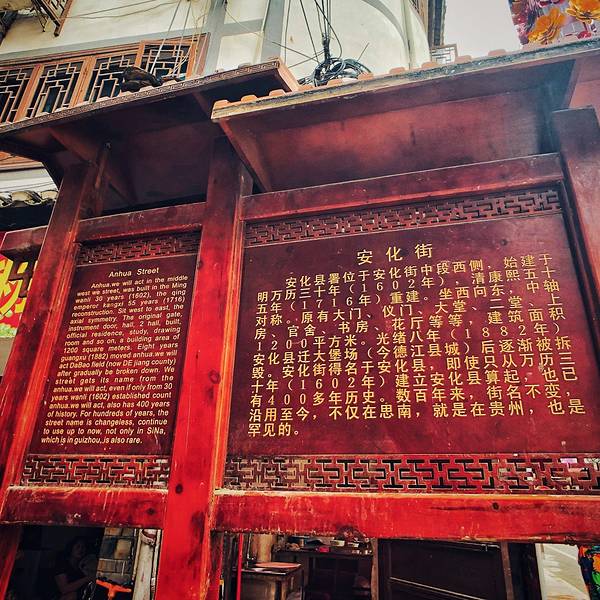 Anhua Street
Anhua.we will act in the middle
west we street, was built in the Ming
wanli 30 years (1602), the qing
emperor kangxi 55 years (1716)
reconstruction. Sit west to east, the
axial symmetry. The original gate,
instrument door, hall, 2 hall, built,
official residence, study, drawing
room and so on, a building area of
1200 square meters. Eight years
guangxu (1882) moved anhua.we will
act DaBao field (now DE jiang county)
after gradually be broken down. We
street gets its name from the
anhua.we will act, even if only from 30
years wanli (1602) established count
anhua.we will act, also has 400 years
of history. For hundreds of years, the
street name is changeless, continue
to use up to now, not only in SiNa,
which is in guizhou,,is also rare.
安化街
安化县署位于安化街中段西侧，始建于
明万历三十年（1602年），清康熙五十
五年（1716年）重建。坐西向东，中轴
对称。原有大门、仪门、大堂、二堂、上
房、官舍、书房、花厅等等，建筑面积
1200平方米。光绪八年（1882年）
安化县迁大堡场（今德江县城）后逐渐被拆
毁。安化街得名于安化县，即使只从万历三
十年（1602年）建立安化县算起，也已
有400多年历史。数百年来，街名不变，
沿用至今，不仅在思南，就是在贵州，也是
罕见的。